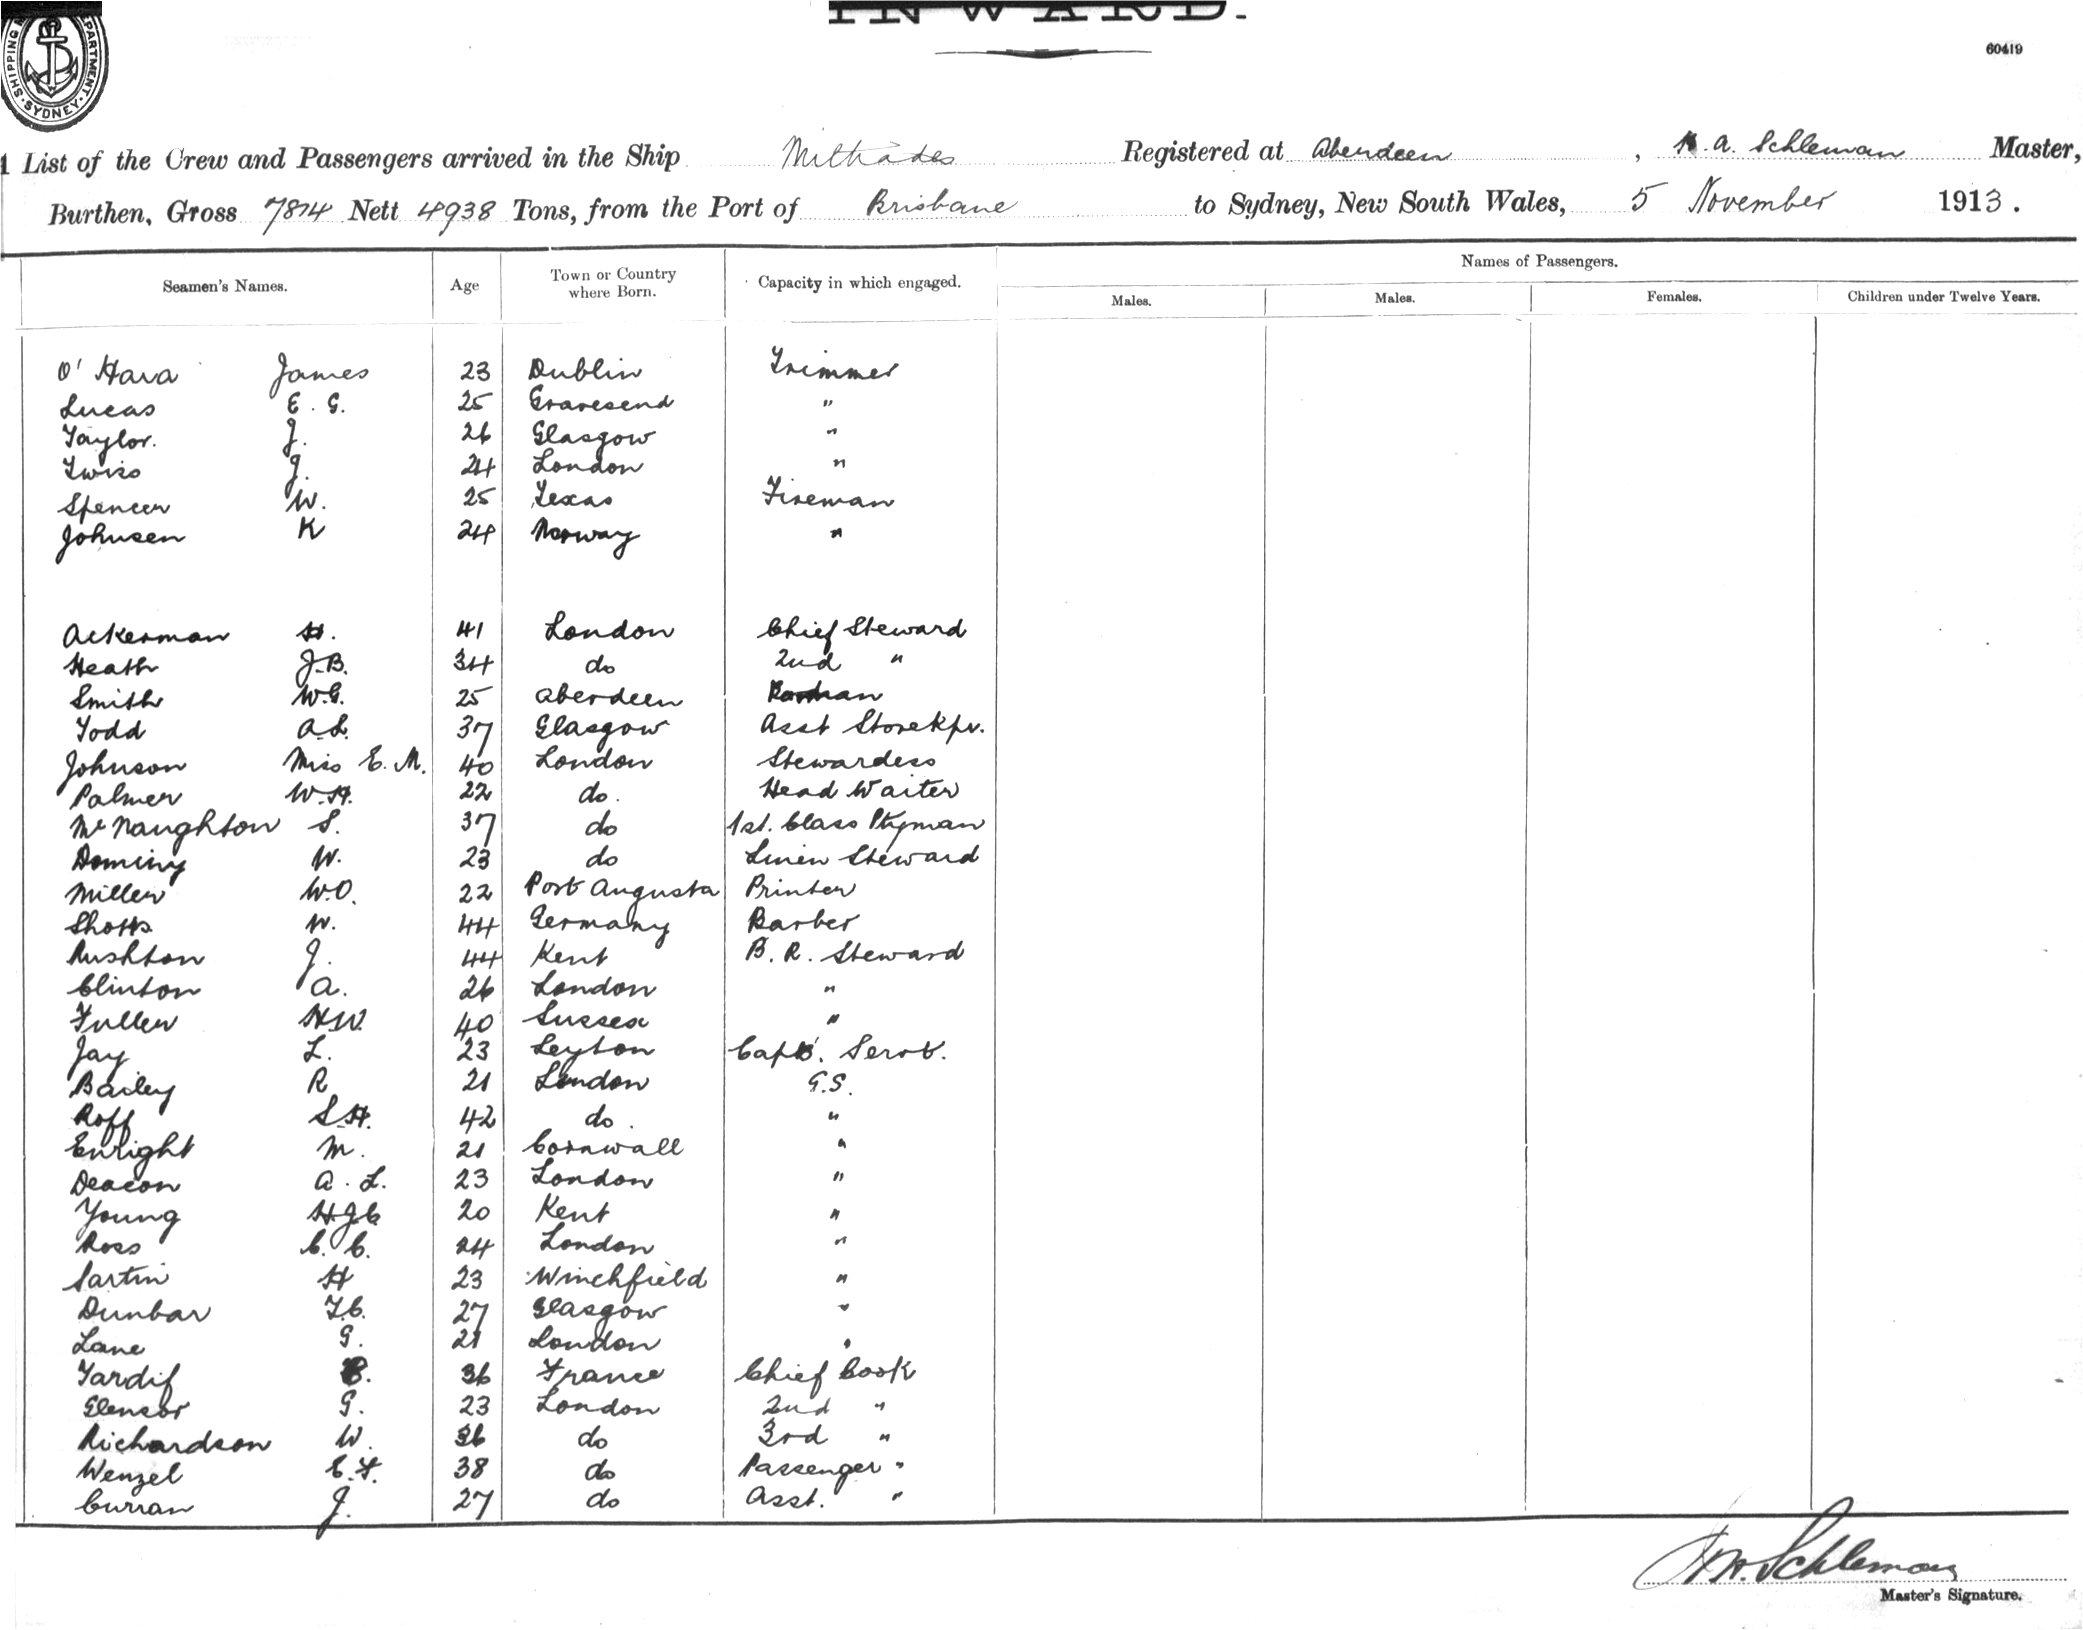 INWARD.
SHIPPING DEPARTMENT SYDNEY
60419
List of the Crew and Passengers arrived in the Ship Miltiades Registered at Aberdeen, A. Schleman Master,
Burthen, Gross 7814 Nett 4938 Tons, from the Port of Brisbane to Sydney, New South Wales, 5 November 1913.
Seamen's Names. Age Town or Country where Born. Capacity in which engaged. Names of Passengers.
Males. Males. Females. Children under Twelve Years.
O'Hara James 23 Dublin Trimmer
Lucas E. G. 25 Gravesend "
Taylor. J. 26 Glasgow "
Twiss J. 24 London "
Spencer W. 25 Texas Fireman
Johnsen K 24 Norway "
Ackerman H. 41 London Chief Steward
Heath J.B. 34 do 2nd "
Smith W.G. 25 Aberdeen
Todd A.L. 37 Glasgow Asst Storekpr.
Johnson Miss E. M. 40 London Stewardess
Palmer W.H. 22 do. Head Waiter
McNaughton S. 37 do 1st. Class Ptyman
Dominy W. 23 do Linen Steward
Miller W.O. 22 Port Augusta Printer
Shotts W. 44 Germany Barber
Rushton J. 44 Kent B. R. Steward
Clinton A. 26 London "
Fuller H.W. 40 Sussex "
Jay L. 23 Leyton Capt. Servt.
Bailey R 21 London G.S.
Roff S.H. 42 do. "
Enright M. 21 Cornwall "
Deacon A. L. 23 London "
Young H.J.C 20 Kent "
Ross C. C. 24 London "
Sartin H 23 Winchfield "
Dunbar T.C. 27 Glasgow "
Lane G. 21 London "
Tardif 36 France Chief Cook
Elensor G. 23 London 2nd "
Richardson W. 36 do 3rd "
Wenzel C.F. 38 do Passenger "
Curran J. 27 do Asst. "
Schleman
Master's Signature.